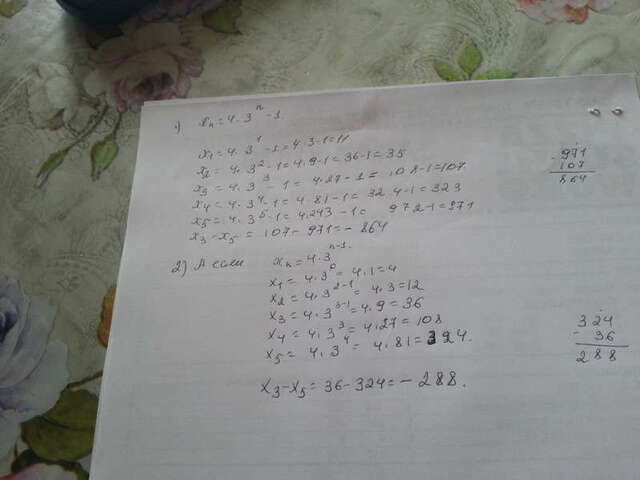 1) xₙ = 4·3ⁿ - 1
x₁ = 4·3¹ - 1 = 4·3 - 1 = 11
x₂ = 4·3² - 1 = 4·9 - 1 = 36 - 1 = 35
x₃ = 4·3³ - 1 = 4·27 - 1 = 108 - 1 = 107
x₄ = 4·3⁴ - 1 = 4·81 - 1 = 324 - 1 = 323
x₅ = 4·3⁵ - 1 = 4·243 - 1 = 972 - 1 = 971
x₃ - x₅ = 107 - 971 = - 864
- 971
107
864
2) А если xₙ = 4·3ⁿ⁻¹.
x₁ = 4·3⁰ = 4·1 = 4
x₂ = 4·3²⁻¹ = 4·3 = 12
x₃ = 4·3³⁻¹ = 4·9 = 36
x₄ = 4·3³ = 4·27 = 108
x₅ = 4·3⁴ = 4·81 = 324.
x₃ - x₅ = 36 - 324 = - 288.
324
- 36
288